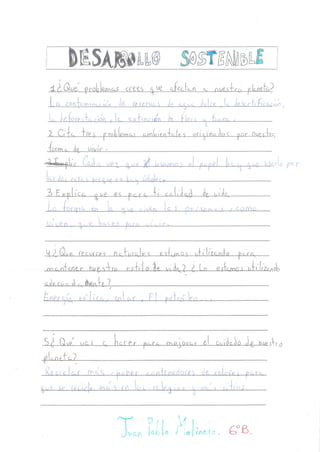 DESARROLLO SOSTENIBLE
1.¿Qué problemas crees que afectan a nuestro planeta?
La contaminación de reservas de agua dulce, la desertificación,
la deforestación, la extinción de flora y fauna.
2. Cita tres problemas ambientales originados por nuestra
forma de vivir.
Cada vez que usamos el papel hay que usarlo por
las dos caras porque
3.Explica que es para ti calidad de vida
La forma en la que viven las personas, como
viven, que hacen para vivir.
4.¿Que recursos naturales estamos utilizando para
mantener nuestro estilo de vida? ¿Lo estamos utilizando
adecuadamente?
Energía eólica, solar, El petróleo...
5¿Qué vas a hacer para mejorar el cuidado de nuestro
planeta?
Reciclar más, poner contenedores de colores para
que se recicle más en los colegios y más sitios.
Juan Pablo Molinero. 6ºB.